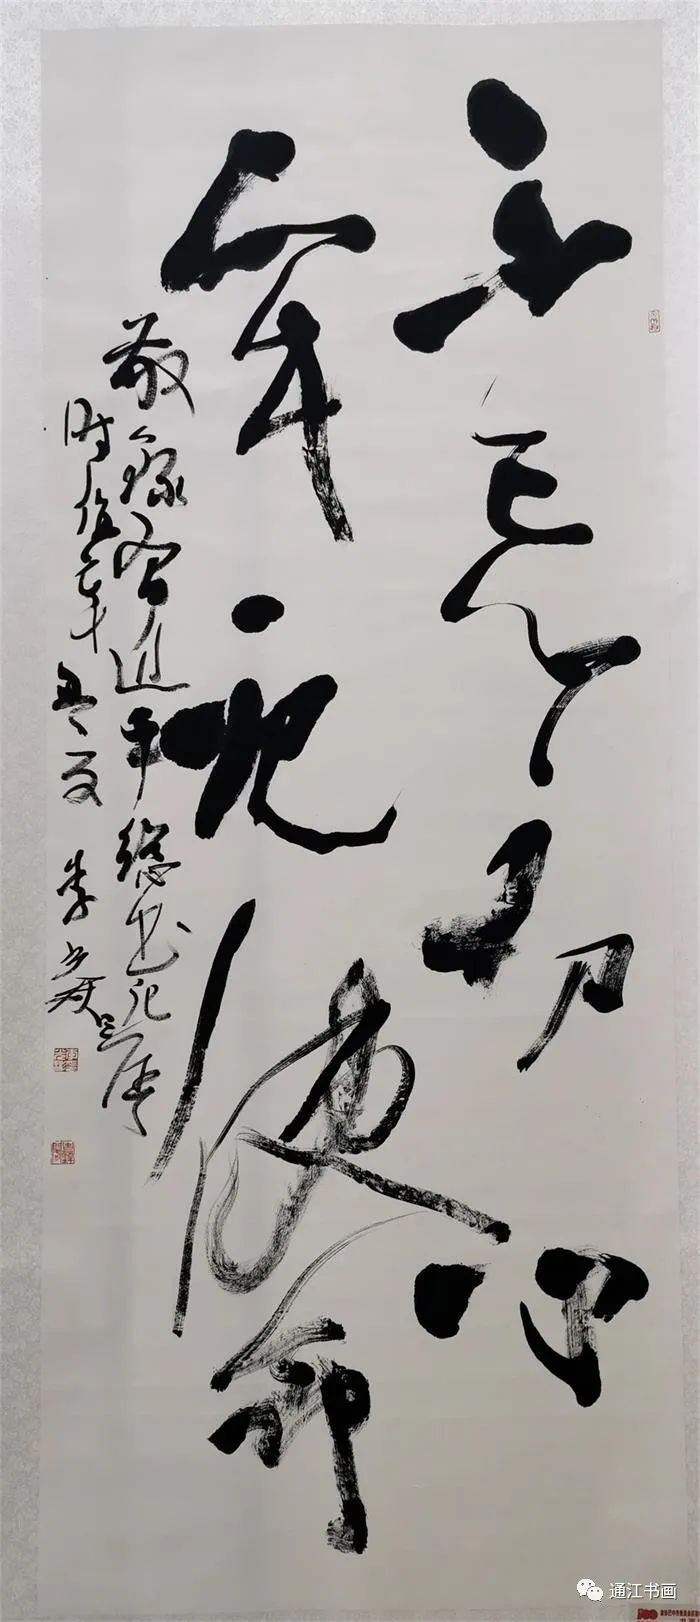 不忘初心
牢记使命
敬录习近平总书记
时在辛丑年夏 李
通江书画